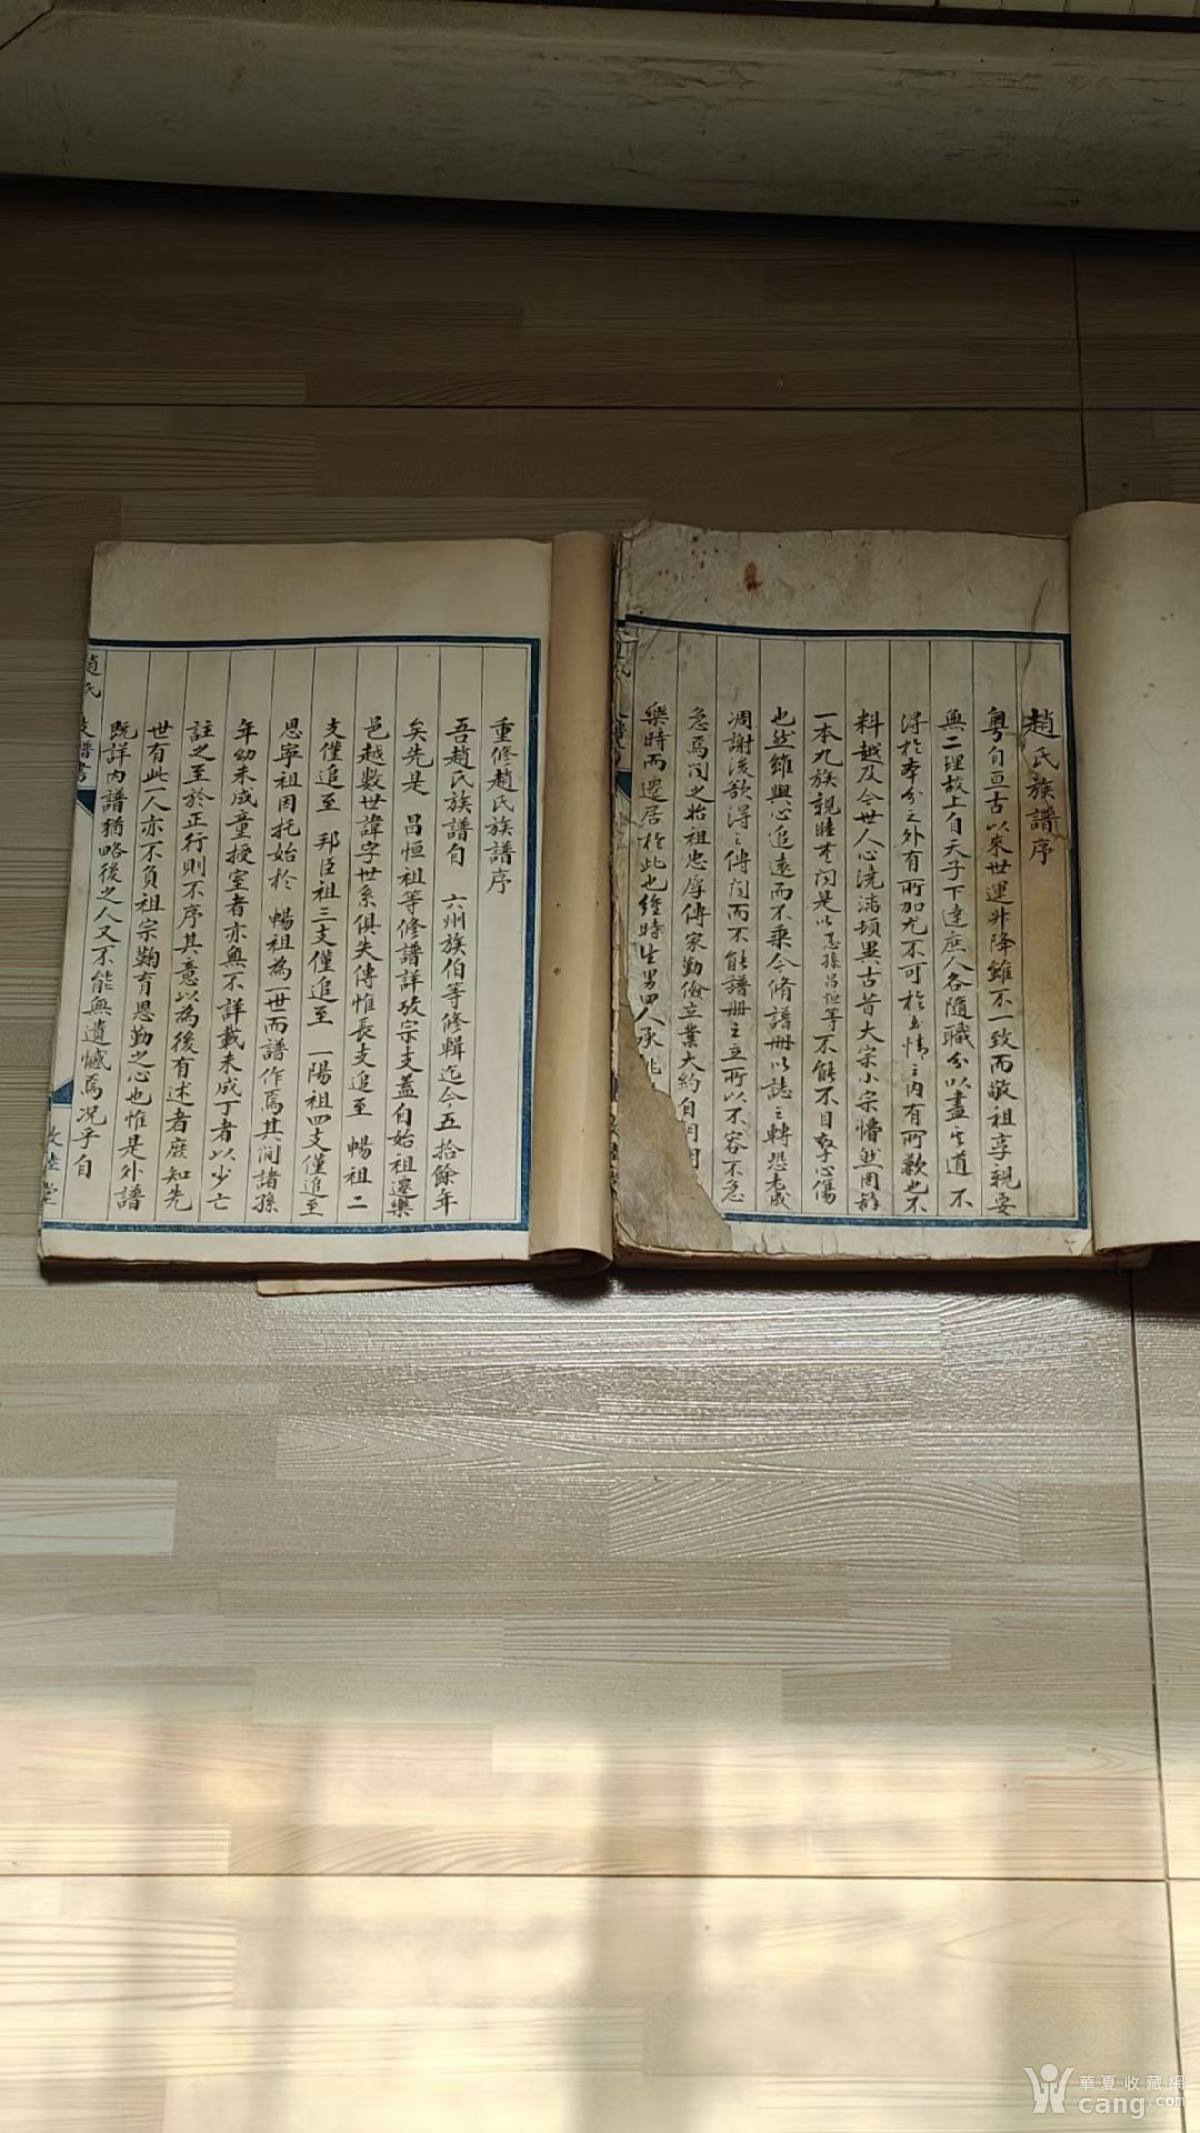 趙氏族譜序
粵自亘古以來世運升降雖不一致而敬祖享親要
無二理故上自天子下達庶人各隨職分以盡其道不
得於本分之外有所加尤不可於至情之内有所歉也不
料越及今世人心澆漓頓異古昔大宗小宗懵然罔辭
一本九族親睦無聞是以孫昌恒等不能不目擊心傷
也然雖與心追遠而不乘今脩譜冊以誌之轉恐老成
凋謝後欲得之傳聞而不能譜冊之立所以不容不急
急焉聞之始祖忠厚傳家勤儉立業大約自明
樂時而遷居於此也經時生男四人承
重修趙氏族譜序
吾趙氏族譜自 六州族伯等修輯迄今五拾餘年
矣先是 昌恒祖等修譜詳攷宗支蓋自始祖遷樂
邑越數世諱字世系俱失傳惟長支追至 暢祖二
支僅追至 邦臣祖三支僅追至 一陽祖四支僅追至
思寧祖因托始於 暢祖為一世而譜作焉其間諸孫
年幼未成童授室者亦無不詳載未成丁者以少亡
註之至於正行則不序其意以為後有述者庶知先
世有此一人亦不負祖宗鞠育恩勤之心也惟是外譜
既詳内譜猶略後之人又不能無遺憾焉况乎自
趙氏 族譜書
敦睦堂
華夏收藏網
cang.com